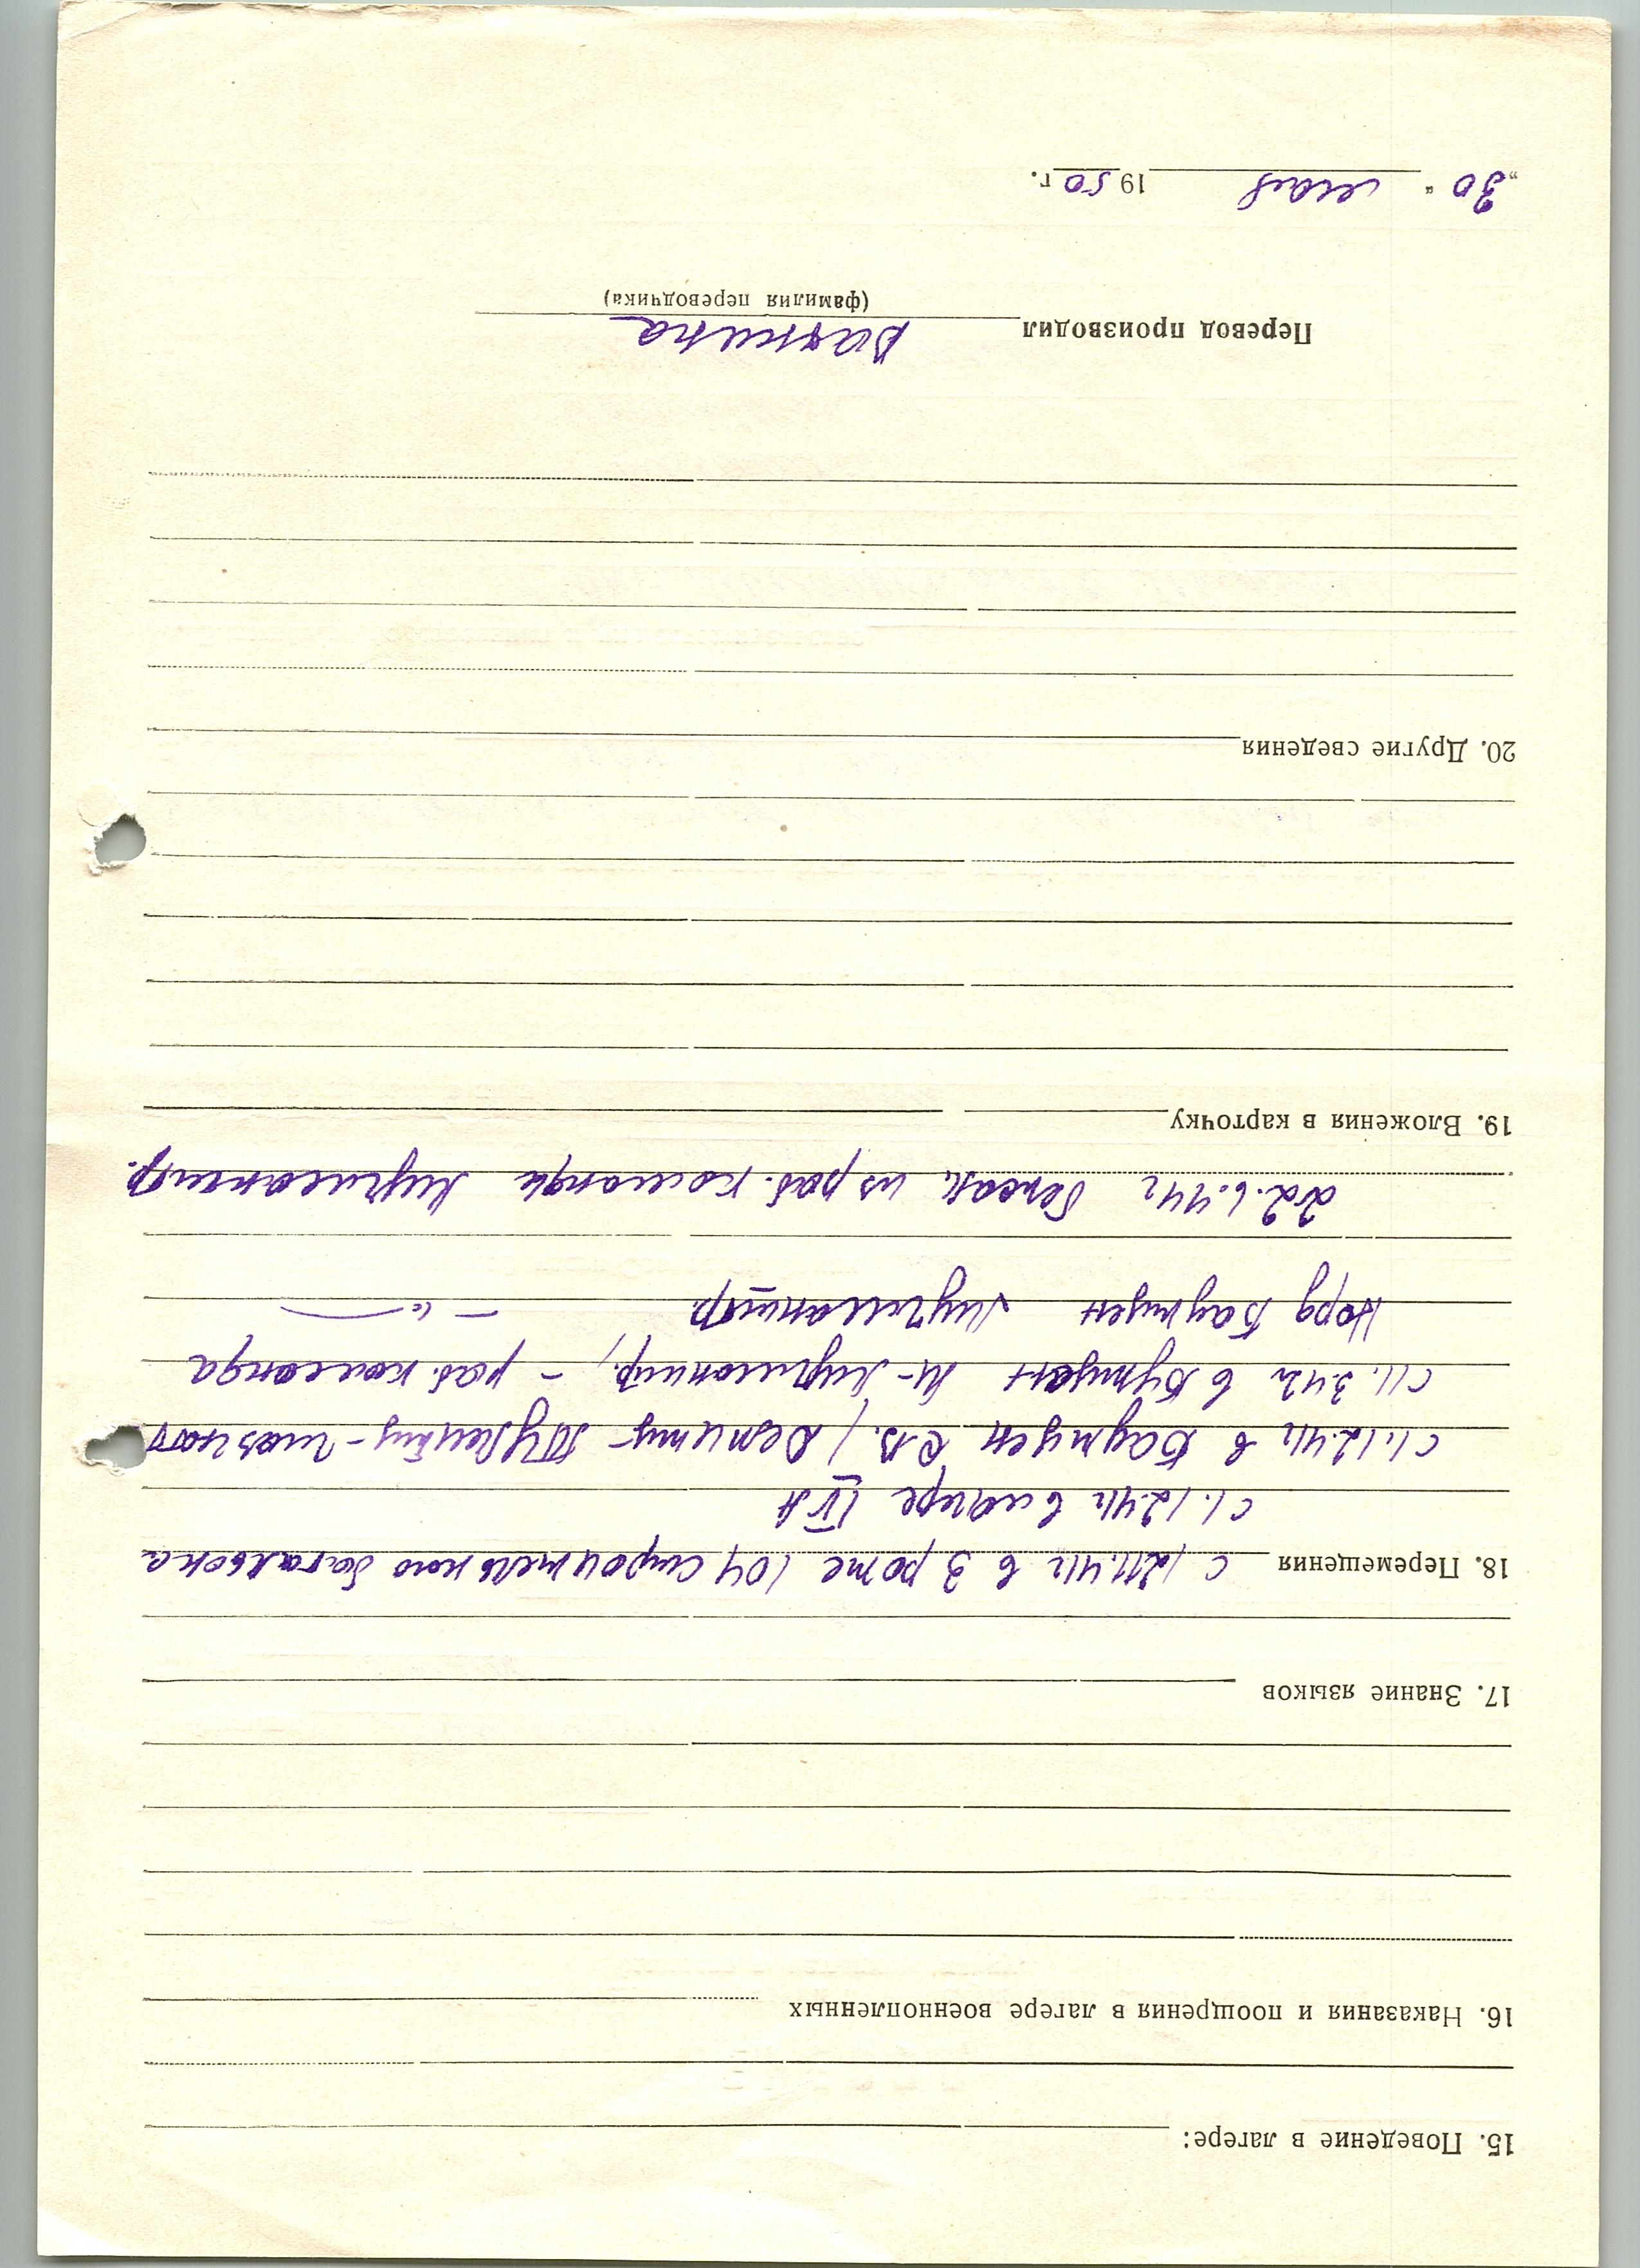 15. Поведение в лагере:
16. Наказания и поощрения в лагере военнопленных
17. Знание языков
18. Перемещения с 12.11.41г в 3 роте 104 строительного батальона
с 1.12.41г в лагере IV A
с 1.12.41г в Баутцен
с 11.3.42г в Бутцен раб. команда
Норд Баутцен — " —
22.6.44г бежал из раб. команды
19. Вложения в карточку
20. Другие сведения
Перевод производил
(фамилия переводчика)
„30“ мая 1950 г.